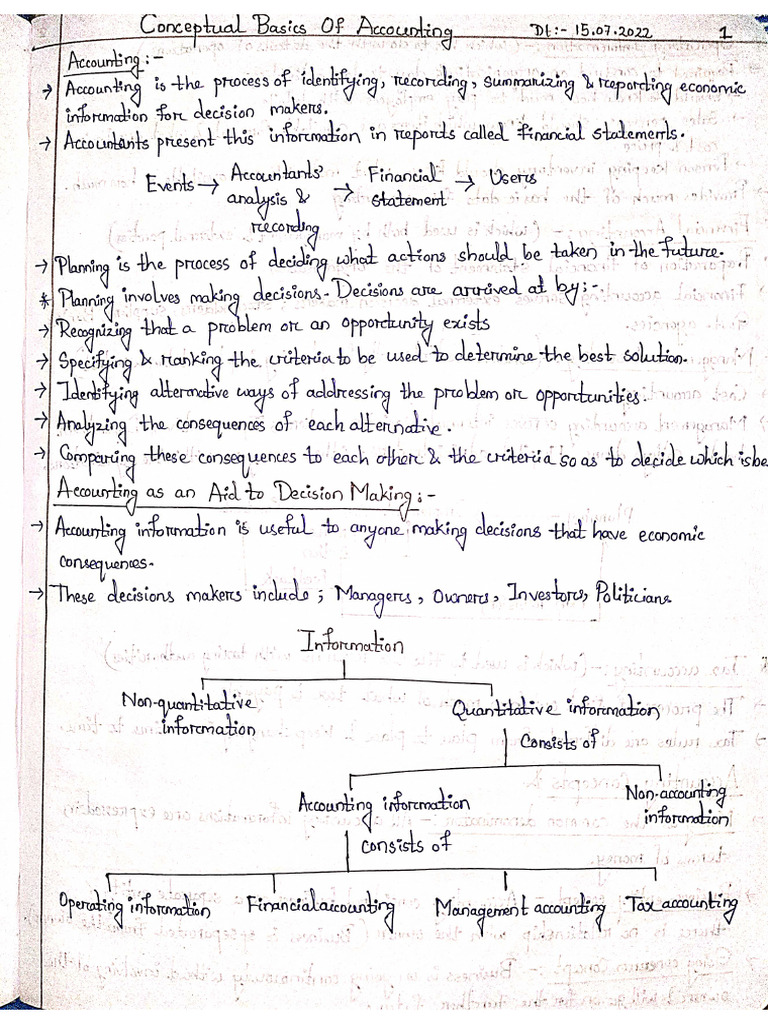 Conceptual Basics Of Accounting Dt:- 15.07.2022 1
Accounting:-
→ Accounting is the process of identifying, recording, summarizing & reporting economic
information for decision makers.
→ Accountants present this information in reports called financial statements.
Events → Accountants' analysis & recording → Financial statement → Users
→ Planning is the process of deciding what actions should be taken in the future.
* Planning involves making decisions. Decisions are arrived at by:-
→ Recognizing that a problem or an opportunity exists
→ Specifying & ranking the criteria to be used to determine the best solution.
→ Identifying alternative ways of addressing the problem or opportunities.
→ Analyzing the consequences of each alternative.
→ Comparing these consequences to each other & the criteria so as to decide which is be
Accounting as an Aid to Decision Making:-
→ Accounting information is useful to anyone making decisions that have economic
consequences.
→ These decisions makers include; Managers, Owners, Investors, Politicians
Information
Non-quantitative information
Quantitative information
Consists of
Accounting information
Non-accounting information
consists of
Operating information Financial accounting Management accounting Tax accounting